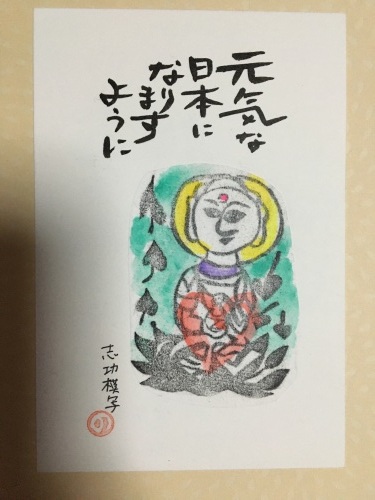 元気な
日本に
なります
ように
志功模写